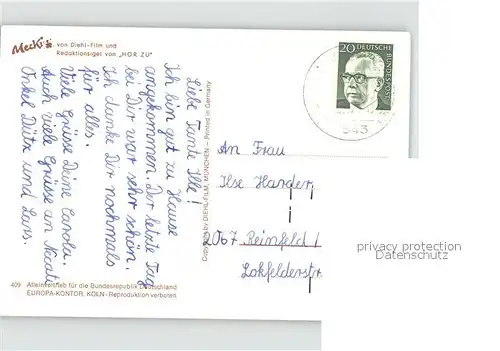 Mecki
von Diehl-Film und
Redaktionsigel von „HÖR ZU"
Liebe Tante Ilse!
Ich bin gut zu Hause
angekommen. Der letzte Tag
bei Dir war sehr schön.
Ich danke Dir nochmals
für alles.
Viele Grüsse Deine Carola.
Auch viele Grüsse an
Onkel Dütz und Lars.
409 Alleinvertrieb für die Bundesrepublik Deutschland
EUROPA-KONTOR, KÖLN - Reproduktion verboten
Copyright by DIEHL-FILM, MÜNCHEN – Printed in Germany
20 DEUTSCHE
BUNDESPOST
543
An Frau
Ilse Harder
2067 Reinfeld /
Lokfelderstr
privacy protection
Datenschutz